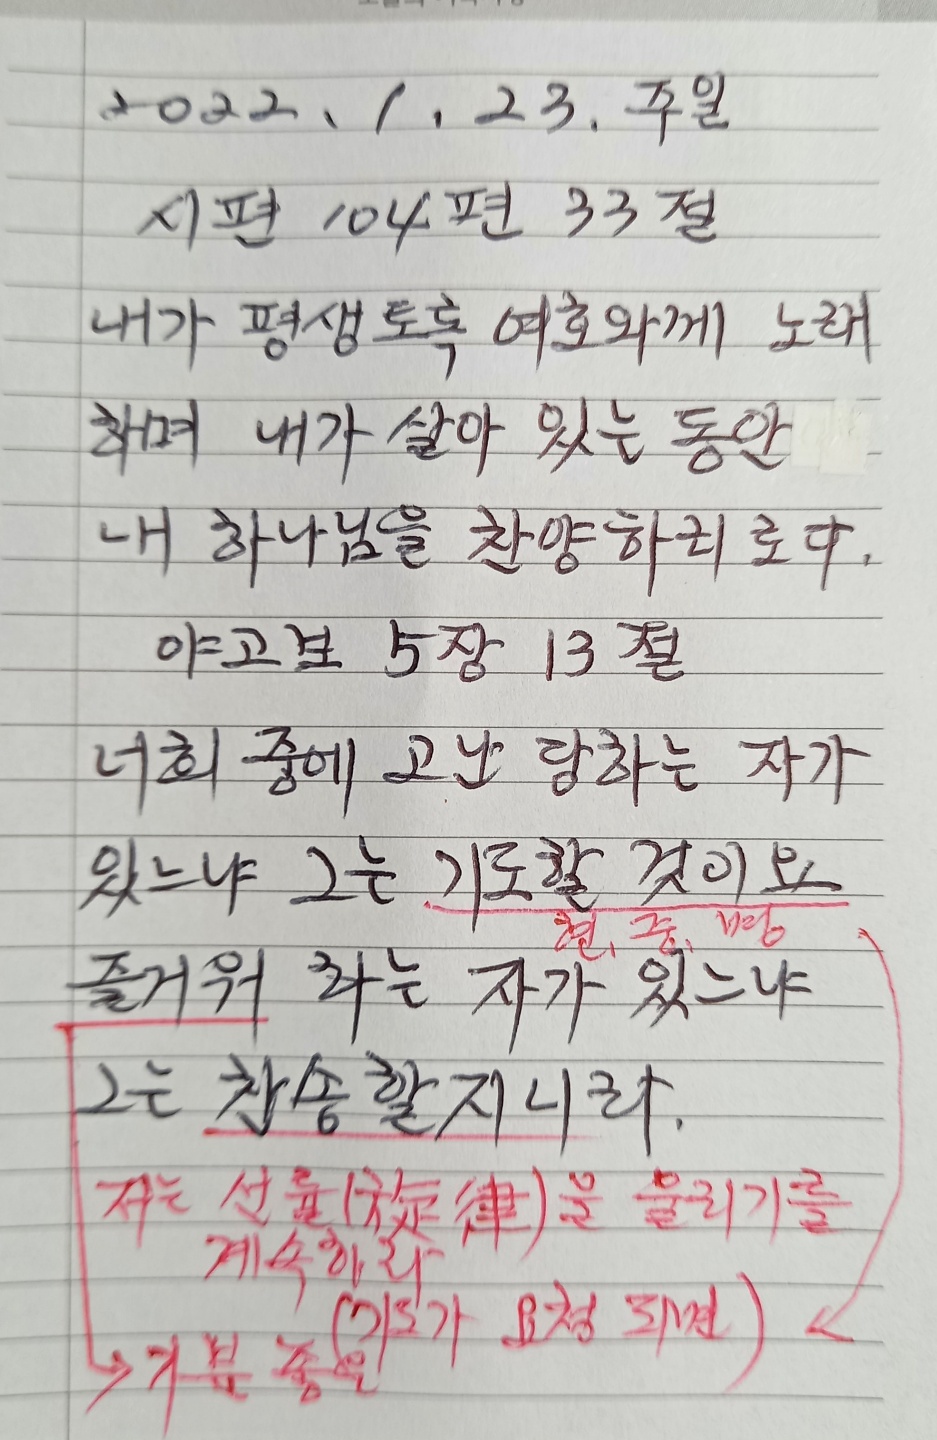 2022. 1. 23. 주일
시편 104편 33절
내가 평생토록 여호와께 노래
하며 내가 살아 있는 동안
내 하나님을 찬양하리로다.
야고보 5장 13절
너희 중에 고난 당하는 자가
있느냐 그는 기도할 것이요
현, 중, 명
즐거워 하는 자가 있느냐
그는 찬송할지니라.
저는 선률(旋律)을 울리기를
계속하라
(기도가 요청 되면)
기분 좋음